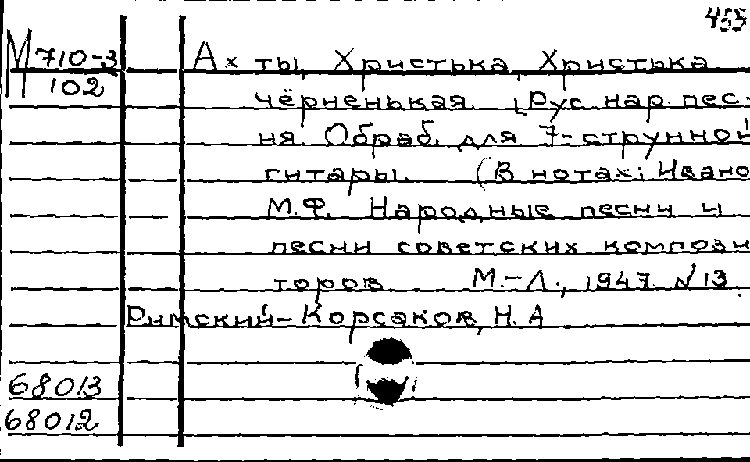 455
М 710-3
102
Ах ты, Христька, Христька
чёрненькая. [Рус. нар. пес-
ня. Обраб. для 7-струнной
гитары. (В нотах: Ивано
М.Ф. Народные песни и
песни советских компози
торов. М.-Л., 1947. №13.
Римский-Корсаков, Н.А
68013
68012